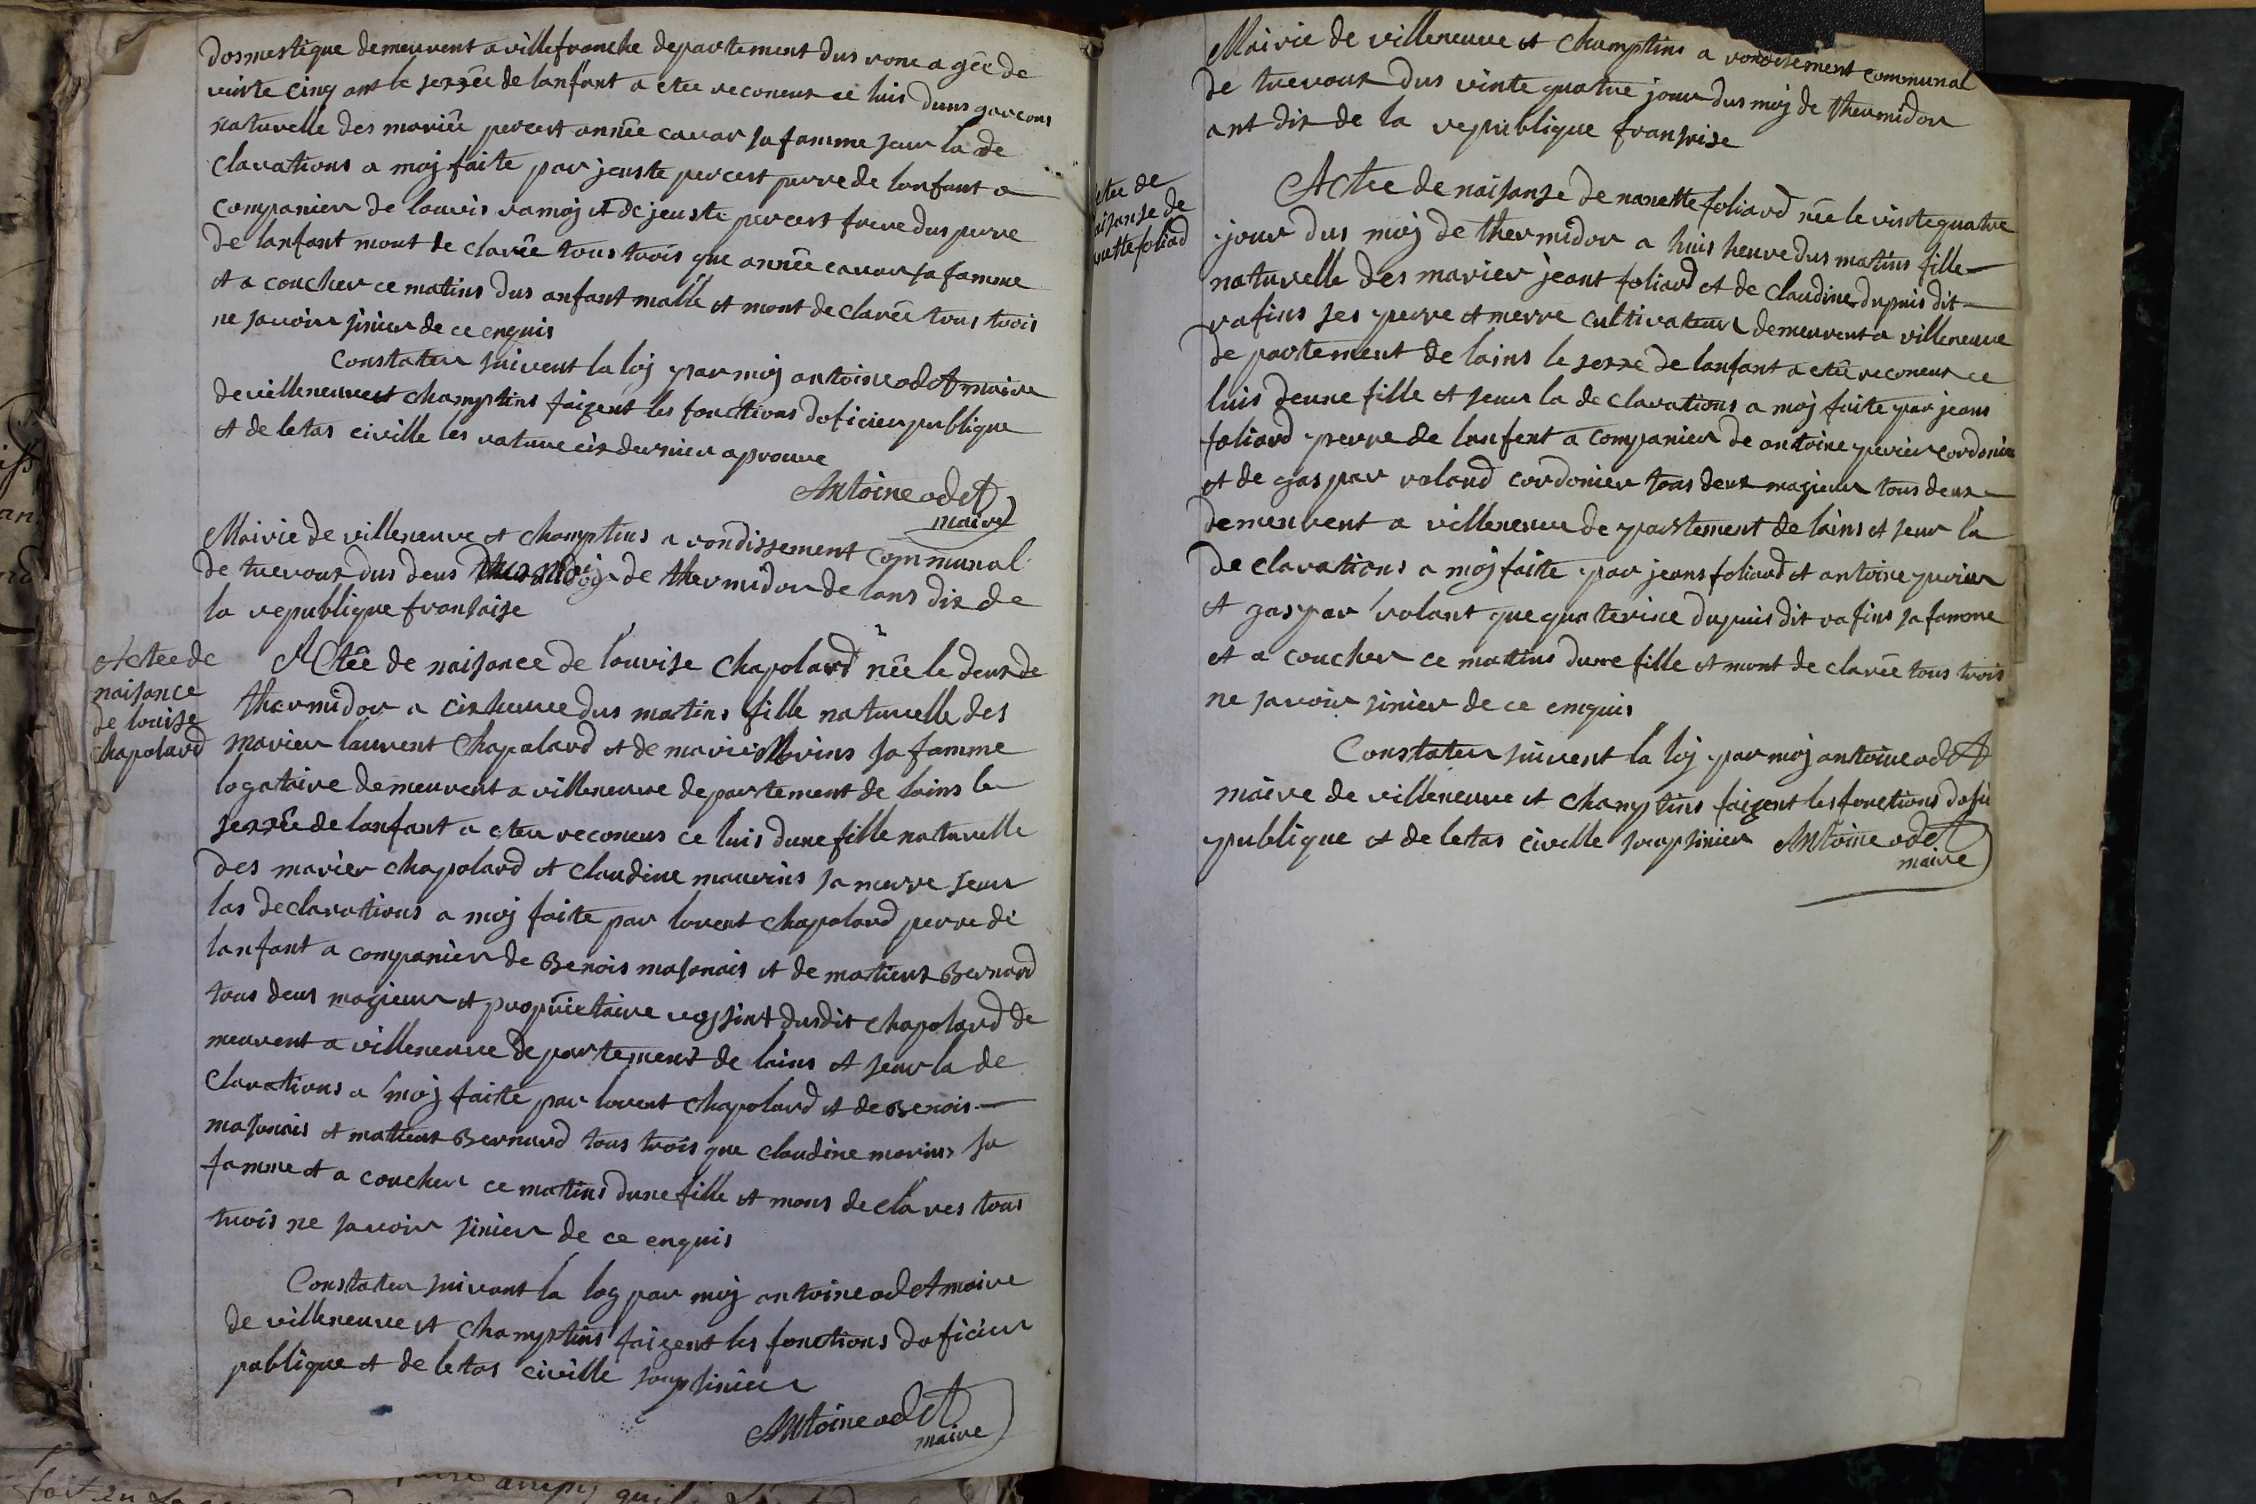 dosmestique demeurent a villefranche departement dus rone a gée de
vinte cinq ant le sexsée de lanfant a etee reconeus ce luis duns garcons
naturelle des mariée percert année cavar sa famme seur la de
clarations a moj faite par jeuste percert perre de lanfant a
companier de louvis ramoj et de jeuste percert frere dus perre
de lanfant mont de clarée tous trois que année cavar sa famme
et a coucher ce matins dus anfant malle et mont de clarée tous trois
ne savoir sinier de ce enquis
Constater suivent la loj par moj antoine odet maire
de villeneuve et champtins faizent les fonctions doficier publique
et de letas civille les rature cis dernier aprouve
Antoine odet
maire
Mairie de villeneuve et champtins a rondissement communal
de trevoux dus deus de thermidor de lans dix de
la republique fransaise
Actee de
naisance
de louise
chapolard
Actée de naisance de louvise chapolard née le deux de
thermidor a cinheure dus matins fille naturelle des
marier laurent chapalard et de marie Morins sa famme
logataire demeurent a villeneuve departement de lains le
sexsée de lanfant a etee reconeus ce luis dune fille naturelle
des marier chapolard et claudine maurins sa merre seur
las declarations a moj faite par lorent chapolard perre de
lanfant a companier de Benois masonais et de matieux Bernard
tous deus magieur et proprietaire vossint dusdit chapolard de
meurent a villeneuve departement de lains et seur la de
clarations a moj faite par lorent chapolard et de Benois
masonais et matieux Bernard tous trois que claudine morins sa
famme et a coucher ce matins dune fille et mons de clares tous
trois ne savoir sinier de ce enquis
Constater suivant la log par moj antoine odet maire
de villeneuve et champtins faizent les fonctions doficier
publique et de letas civille soupsinier
Antoine odet
maire
Mairie de villeneuve et champtins a rondisement communal
de trevoux dus vinte quatre jour dus moj de thermidor
ant dix de la republique fransaise
etee de
aisanse de
nette foliad
Actee de naisanse de nanette foliard née le vinte quatre
jour dus moj de thermidor a huis heure dus matins fille
naturelle des marier jeant foliard et de claudine dupuis dit
rafins ses perre et merre cultivateur demeurent a villeneuve
de partement de lains le sexse de lanfant a etée reconeus ce
luis deune fille et seur la de clarations a moj faite par jeans
foliard perre de lanfent a companier de antoine perier cordonier
et de gaspar roland cordonier tous deux magieur tous deux
demeurent a villeneuve de partement de lains et seur la
de clarations a moj faite par jeans foliard et antoine perier
et gaspar volant que quaterine dupuis dit rafins sa famme
et a coucher ce matins dune fille et mont de clarée tous trois
ne savoir sinier de ce enquis
Constater suivent la loj par moj antoine odet
maire de villeneuve et champtins faizent les fonctions dofi
publique et de letas civille soupsinier Antoine odet
maire